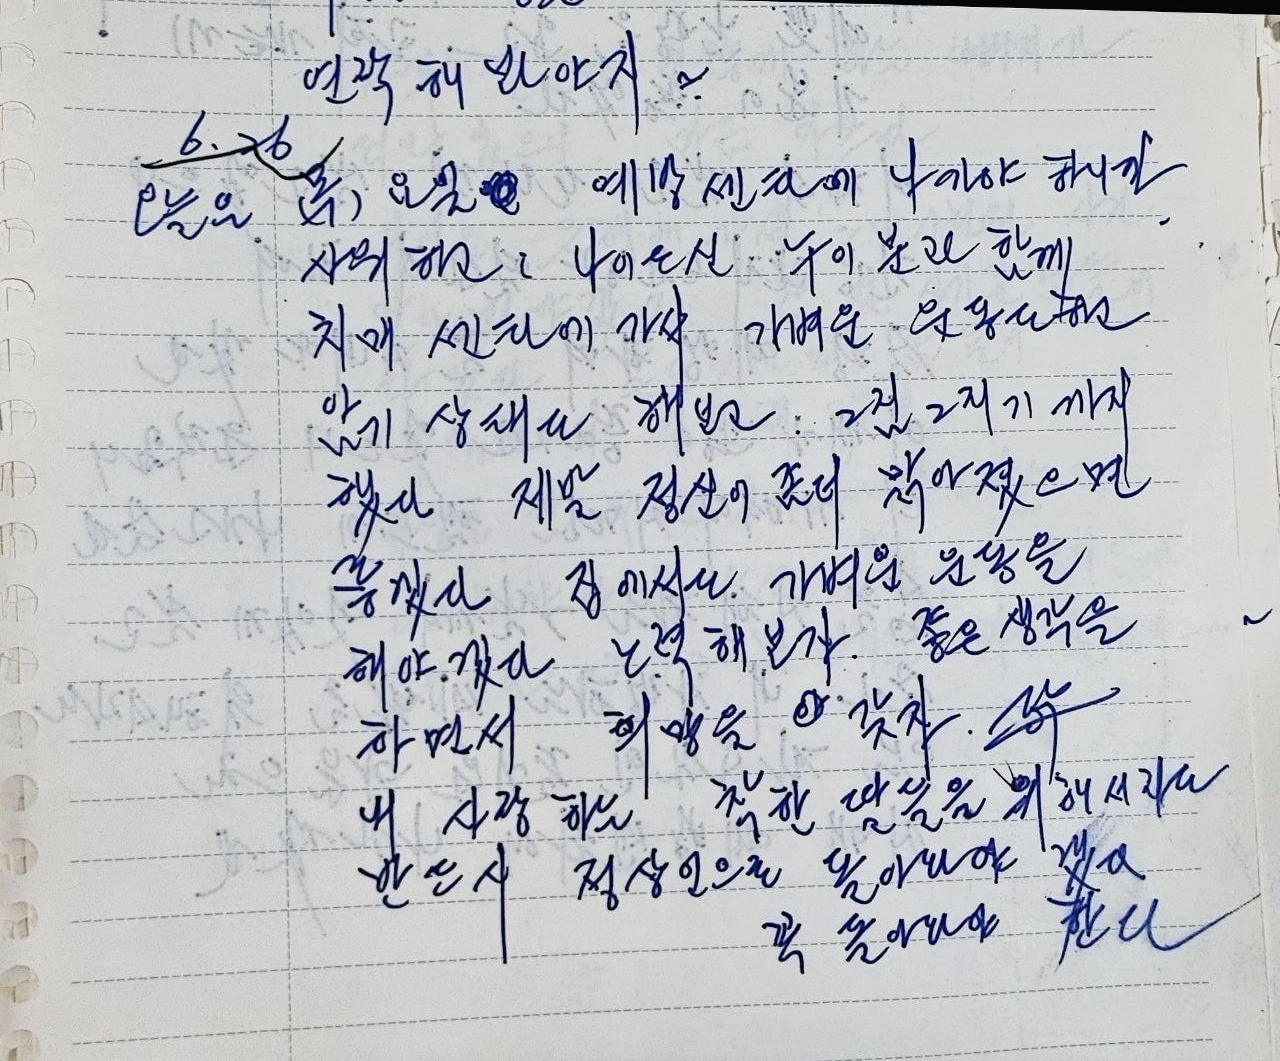 연락 해 봐야지 ~
6. 26
오늘은 (목) 요일 예방센타에 나가야 하니깐
샤워하고 나이드신 누이 분과 함께
치매 센타에 가서 가벼운 운동도하고
암기 상태도 해보고 2집 2직기 까지
했다 제발 정신이 좀더 맑아졌으면
좋겠다 집에서도 가벼운 운동을
해야.겠다 노력해보자. 좋은 생각을
하면서 희망을 갖자.
내 사랑하는 착한 딸들을 위해서라도
반드시 정상인으로 돌아와야 겠다
꼭 돌아와야 한다